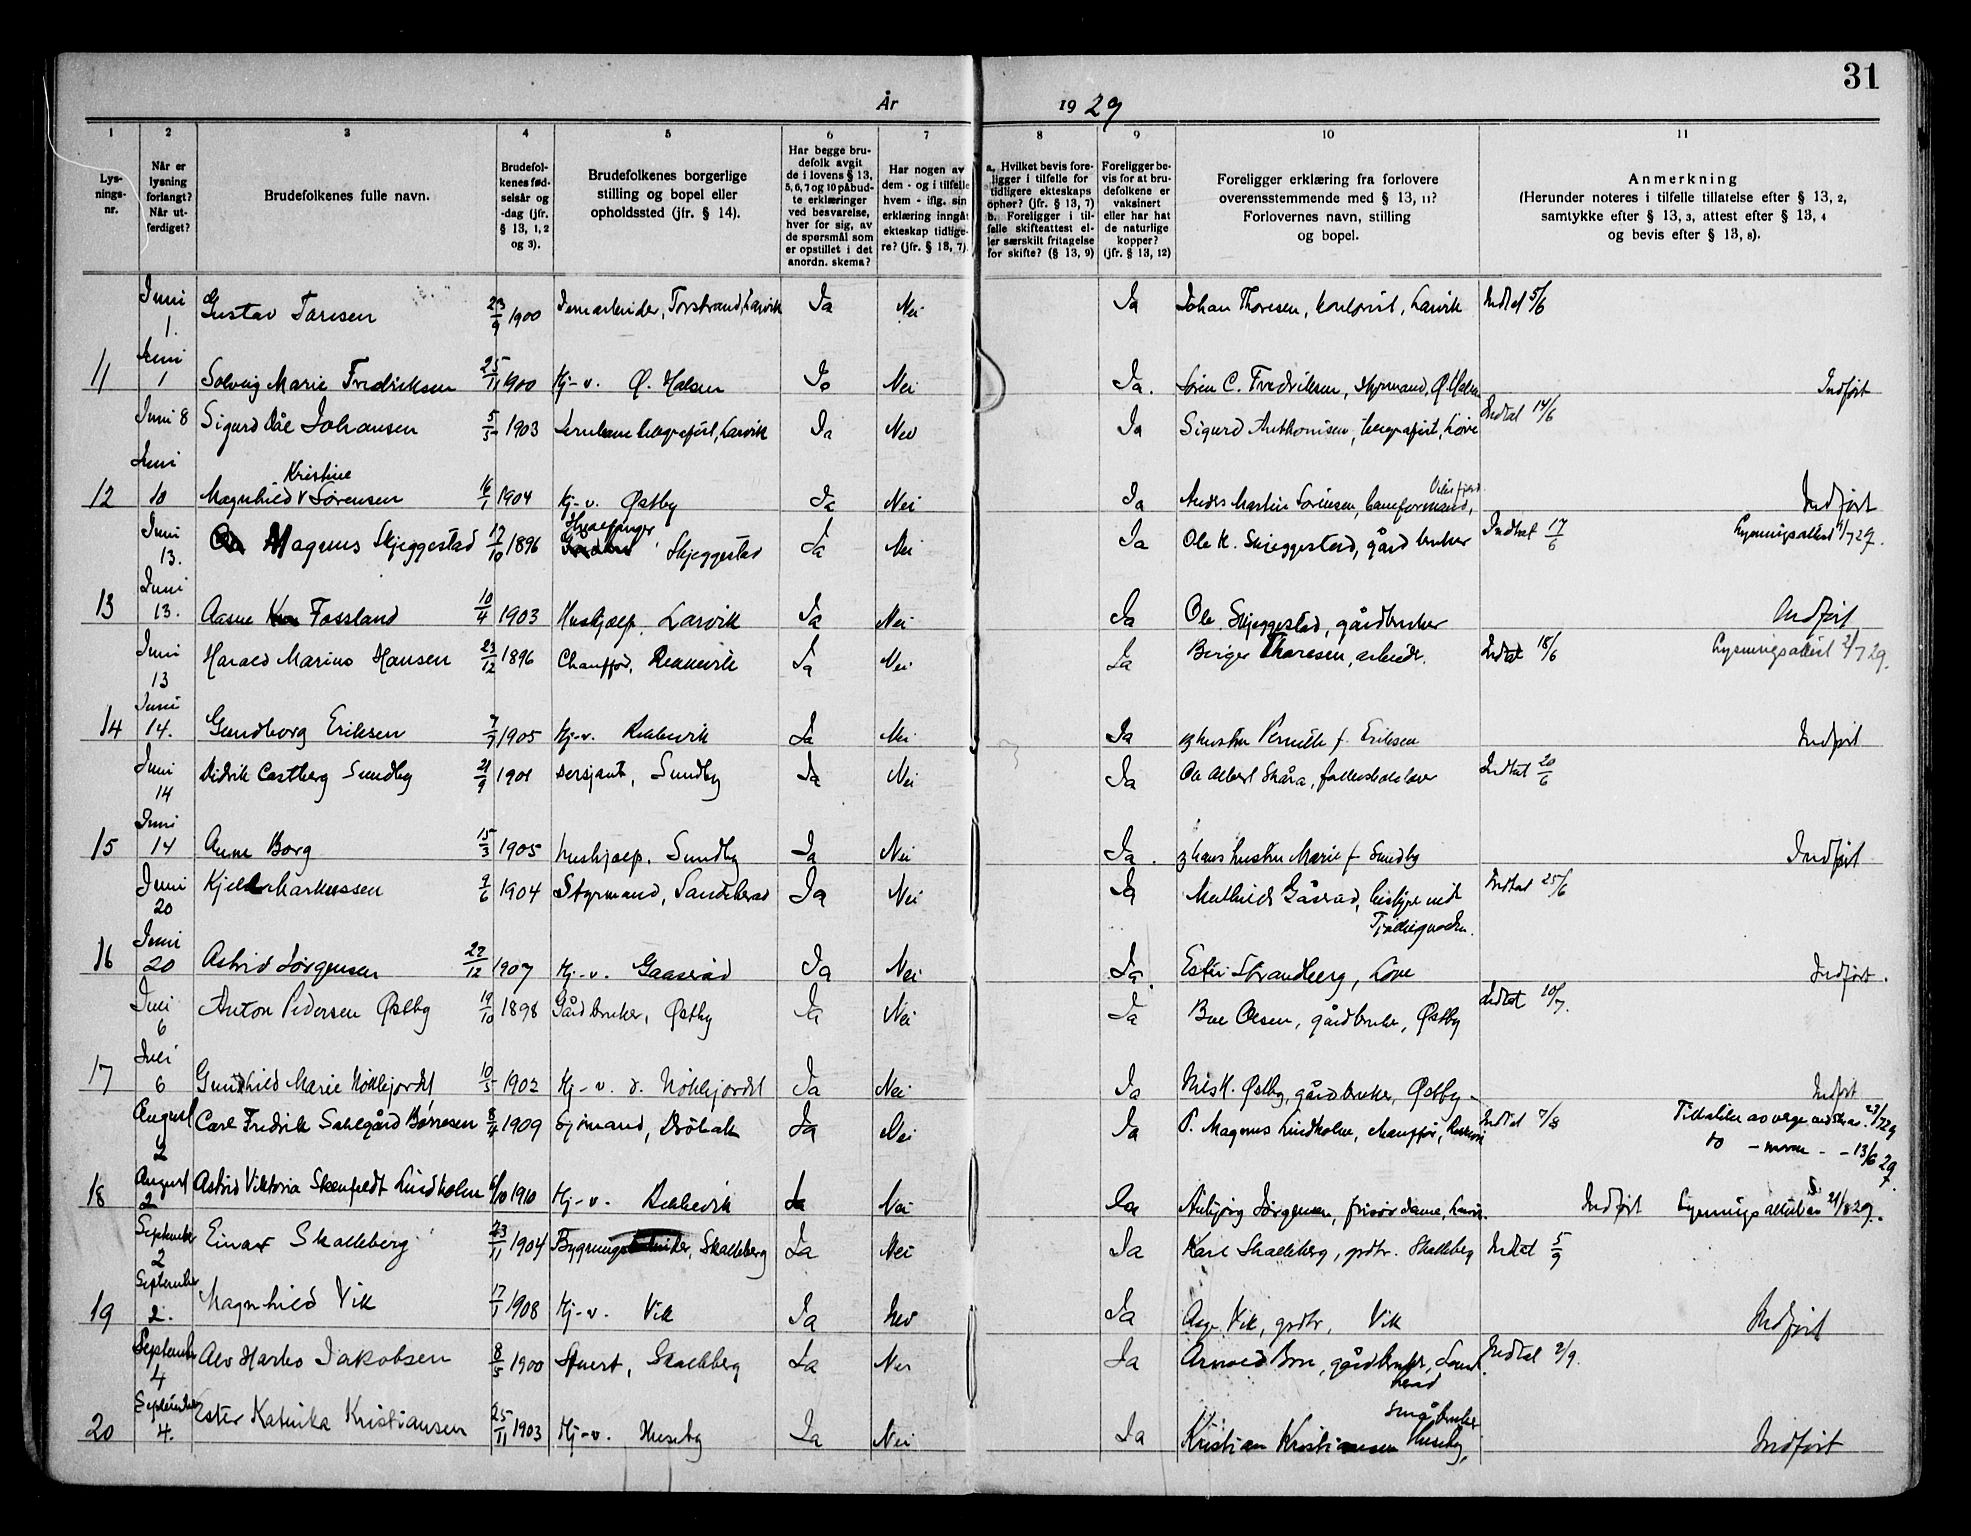 31
År 1929
1 2 3 4 5 6 7 8 9 10 11
Lys-
nings-
nr.
Når er
lysning
forlangt?
Når ut-
ferdiget?
Brudefolkenes fulle navn.
Brudefol-
kenes fød-
selsår og
-dag (jfr.
§ 13, 1, 2
og 3).
Brudefolkenes borgerlige
stilling og bopel eller
opholdssted (jfr. § 14).
Har begge bru-
defolk avgit
de i lovens § 13,
5, 6, 7 og 10 påbud-
te erklæringer
ved besvarelse,
hver for sig, av
de spørsmål som
er opstillet i det
anordn. skema?
Har nogen av
dem - og i tilfelle
hvem - iflg. sin
erklæring inngåt
ekteskap tidlige-
re? (jfr. § 13, 7).
a. Hvilket bevis fore-
ligger i tilfelle for
tidligere ekteskaps
ophør? (jfr. § 13, 7)
b. Foreligger i til-
felle skifteattest el-
ler særskilt fritagelse
for skifte? (§ 13, 9)
Foreligger be-
vis for at bru-
defolkene er
vaksinert
eller har hat
de naturlige
kopper?
(jfr. § 13, 12)
Foreligger erklæring fra forlovere
overensstemmende med § 13, 11?
Forlovernes navn, stilling
og bopel.
Anmerkning
(Herunder noteres i tilfelle tillatelse efter § 13, 2,
samtykke efter § 13, 3, attest efter § 13, 4
og bevis efter § 13, 8).
Juni 1. Gustav Taresen 23/9 1900 Jernarbeider, Torstrand, Larvik Ja Nei Ja Johan Thoresen, Larvik Indtat 5/6
11 Juni 1 Solveig Marie Fredriksen 25/11 1900 Hj-v. Ø. Halsen Ja Nei Ja. Søren C. Fredriksen, styrmand, Ø. Halsen Indført
Juni 8 Sigurd Dåe Johansen 5/5 1903 Larvik Ja Nei Ja Sigurd Anthonisen, telegrafist, Indtat 14/6
12 Juni 10 Magnhild Kristine Sørensen 16/1 1904 Hj-v. Østby Ja Nei Ja Anders Martin Sørensen, baneformand, Indført
Juni 13. Magnus Skjeggestad 17/10 1896 Hvalfanger Skjeggestad Ja Nei Ja Ole K. Skjeggestad, gårdbruker Indtat 17/6 Lysningsattest 1/7 29.
13 Juni 13. Aasne Fossland 10/4 1903 Hushjælp. Larvik Ja Nei Ja Ole Skjeggestad, gårdbruker Indført
Juni 13 Harald Marino Hansen 23/12 1896 Chauffør, Rekkevik Ja Nei Ja Birger Thoresen, arbeider. Indtat 18/6 Lysningsattest 2/7 29.
14 Juni 14. Gundborg Eriksen 7/7 1905 Hj-v. Rekkevik Ja Nei Ja og hustru Pernille f. Eriksen Indført
Juni 14 Didrik Castberg Sundby 21/9 1901 Sersjant, Sundby Ja Nei Ja Ole Albert Skåra, Indtat 20/6
15 Juni 14 Anne Borg 15/3 1905 Hushjælp. Sundby Ja Nei Ja. og hans hustru Marie f. Sundby Indført
Juni 20 Kjell Markussen 9/6 1904 Styrmand, Sandeherad Ja Nei Ja Mathilde Gåserød, Indtat 25/6
16 Juni 20 Astrid Jørgensen 22/12 1907 Hj-v. Gaaserød Ja Nei Ja. Ester Strandberg, Indført.
Juli 6 Anton Pedersen Østby 19/10 1898 Gårdbruker, Østby Ja Nei Ja Olsen, gårdbruker, Østby Indtat 10/7.
17 Juli 6 Gunhild Marie Nøklegjordet 10/5 1902 Hj-v. Nøklegjordet Ja Nei Ja Nils H. Østby, gårdbruker, Østby Indført
August 2 Carl Fredrik Sølegård Børresen 8/4 1909 Sjømand, Drøbak Ja Nei Ja P. Magnus Lindholm, chauffør, Rekkevik Indtat 7/8 29/7 29
do 13/6 29.
18 August 2 Astrid Viktoria Skeufeldt Lindholm 6/10 1910 Hj-v. Rekkevik Ja Nei Ja Jørgensen, frisørdame, Larvik. Indført Lysningsattest 21/8 29.
September 2 Einar Skalleberg 23/11 1904 Bygningsarbeider, Skalleberg Ja Nei Ja Karl Skalleberg, grdbr. Skalleberg Indtat 5/9
19 September 2. Magnhild Vik 17/1 1908 Hj-v. Vik Ja Nei Ja Vik, grdbr, Vik Indført
September 4 Alv Harbo Jakobsen 8/5 1900 Stuert, Skalleberg Ja Nei Ja Arnold Bru, gårdbruker, Sandeherad Indtat 2/9.
20 September 4. Ester Katinka Kristiansen 25/11 1903 Hj-v. Huseby Ja Nei Ja Kristian Kristiansen småbruker Huseby, Indført